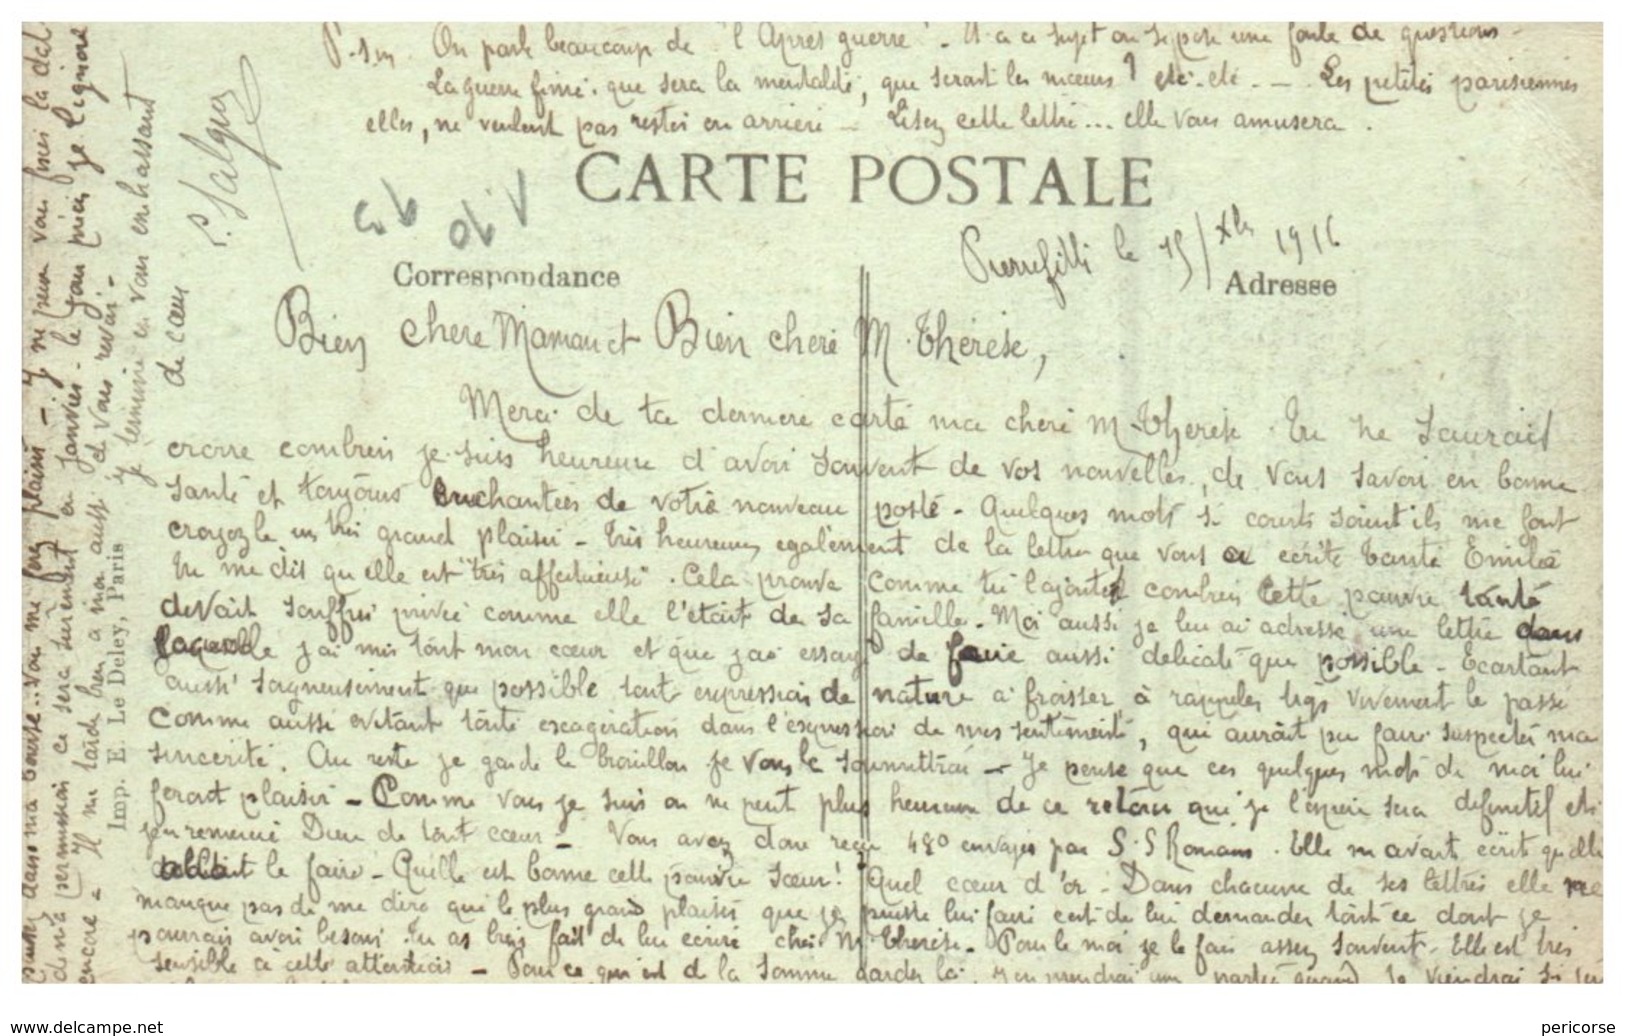 P.S. On parle beaucoup de "l'Après guerre". Et à ce sujet on se pose une foule de questions
La guerre finie, que sera la mentalité, que seront les mœurs ? etc. etc. — Les petites parisiennes
elles, ne veulent pas rester en arrière — Lisez cette lettre... elle vous amusera.
CARTE POSTALE
Correspondance
Adresse
Pierrefitte le 15/Xbre 1916
Bien chère Maman et Bien chère M. Thérèse,
Merci de ta dernière carte ma chère M. Thérèse. Tu ne saurais
croire combien je suis heureux d'avoir souvent de vos nouvelles, de vous savoir en bonne
santé et toujours enchantées de votre nouveau poste - Quelques mots si courts soient ils me font
croyez le un très grand plaisir - Très heureux également de la lettre que vous a écrite tante Emilie
Tu me dis qu'elle est "très affectueuse". Cela prouve comme tu l'ajoutes combien cette pauvre tante
devait souffrir privée comme elle l'était de sa famille. Moi aussi je lui ai adressé une lettre dans
laquelle j'ai mis tout mon cœur et que j'ai essayé de faire aussi délicate que possible - Ecartant
aussi soigneusement que possible tout expression de nature à froisser, à rappeler trop vivement le passé
comme aussi evitant toute exagération dans l'expression de mes sentiments, qui aurait pu faire suspecter ma
sincerité. Au reste je garde le brouillon je vous le soumettrai - Je pense que ces quelques mots de moi lui
feront plaisir - Comme vous je suis on ne peut plus heureux de ce retour qui je l'espère sera définitif et
j'en remercie Dieu de tout cœur - Vous avez donc reçu 480 envoyés par S. S Romain. Elle m'avait écrit qu'elle
allait le faire - Quelle est bonne cette pauvre sœur ! Quel cœur d'or - Dans chacune de ses lettres elle ne
manque pas de me dire que le plus grand plaisir que je puisse lui faire c'est de lui demander tout ce dont je
pourrais avoir besoin. Tu as bien fait de lui écrire chère M. Thérèse - Pour le moi je le fais assez souvent. Elle est très
sensible à cette attention - Pour ce qui est de la somme gardez la. J'en prendrai une partie quand je viendrai si
puiser dans ma bourse.. Vous me ferez plaisir - Je ne peux vous fixer la date
de ma permission ce sera sûrement en Janvier - le jour précis je l'ignore
encore - Il me tarde bien à moi aussi de vous revoir -
je termine en vous embrassant
de cœur
P. Salger
Imp. E. Le Deley, Paris
www.delcampe.net
pericorse